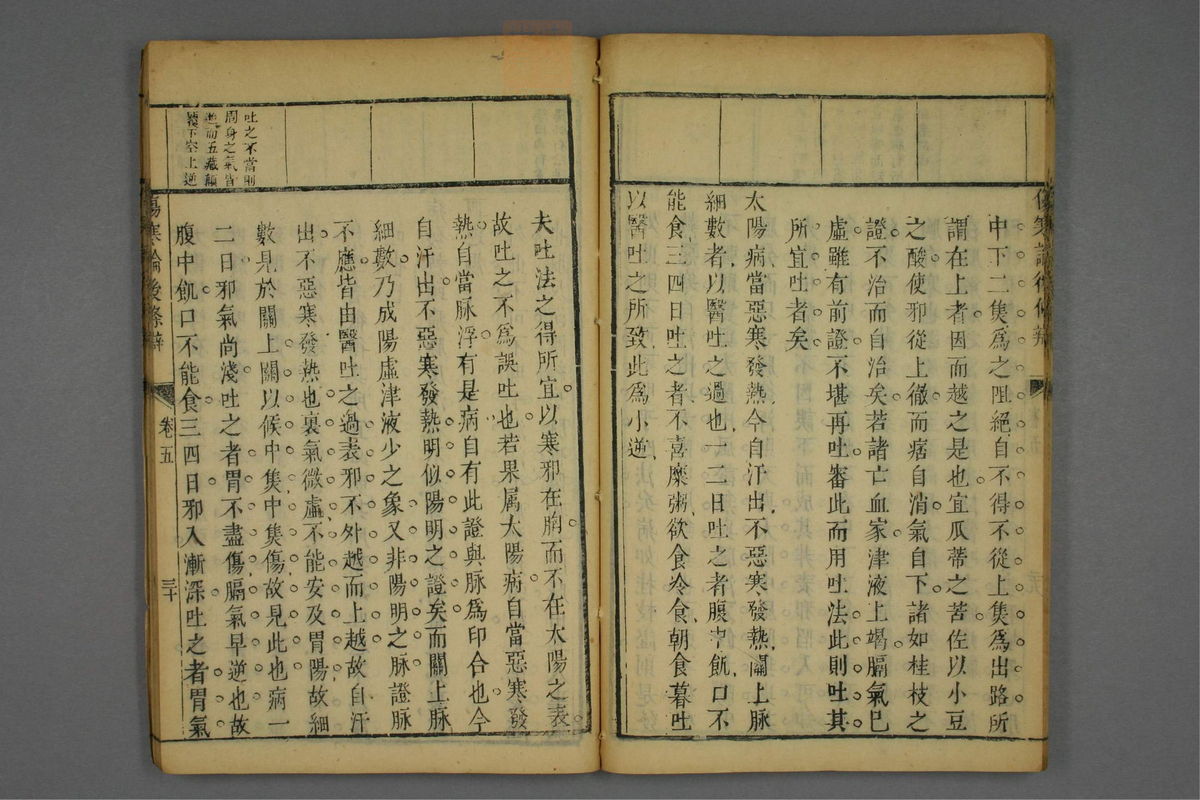 中下二焦爲之阻絕自不得不從上焦爲出路所
謂在上者因而越之是也宜瓜蒂之苦佐以小豆
之酸使邪從上徹而痞自消氣自下諸如桂枝之
證不治而自治矣若諸亡血家津液上竭膈氣已
虛雖有前證不堪再吐審此而用吐法此則吐其
所宜吐者矣
太陽病當惡寒發熱今自汗出不惡寒發熱關上脉
細數者以醫吐之過也一二日吐之者腹中飢口不
能食三四日吐之者不喜糜粥欲食冷食朝食暮吐
以醫吐之所致此爲小逆
傷寒論後條辨
吐之不當則
周身之氣皆
逆而五藏顛
覆下空上逆
夫吐法之得所宜以寒邪在胸而不在太陽之表
故吐之不爲誤吐也若果屬太陽病自當惡寒發
熱自當脉浮有是病自有此證與脉爲印合也今
自汗出不惡寒發熱明似陽明之證矣而關上脉
細數乃成陽虛津液少之象又非陽明之脉證脉
不應皆由醫吐之過表邪不外越而上越故自汗
出不惡寒發熱也裏氣微虛不能安及胃陽故細
數見於關上關以候中焦中焦傷故見此也病一
二日邪氣尚淺吐之者胃不盡傷膈氣早逆也故
腹中飢口不能食三四日邪入漸深吐之者胃氣
傷寒論後條辨 卷五 三十